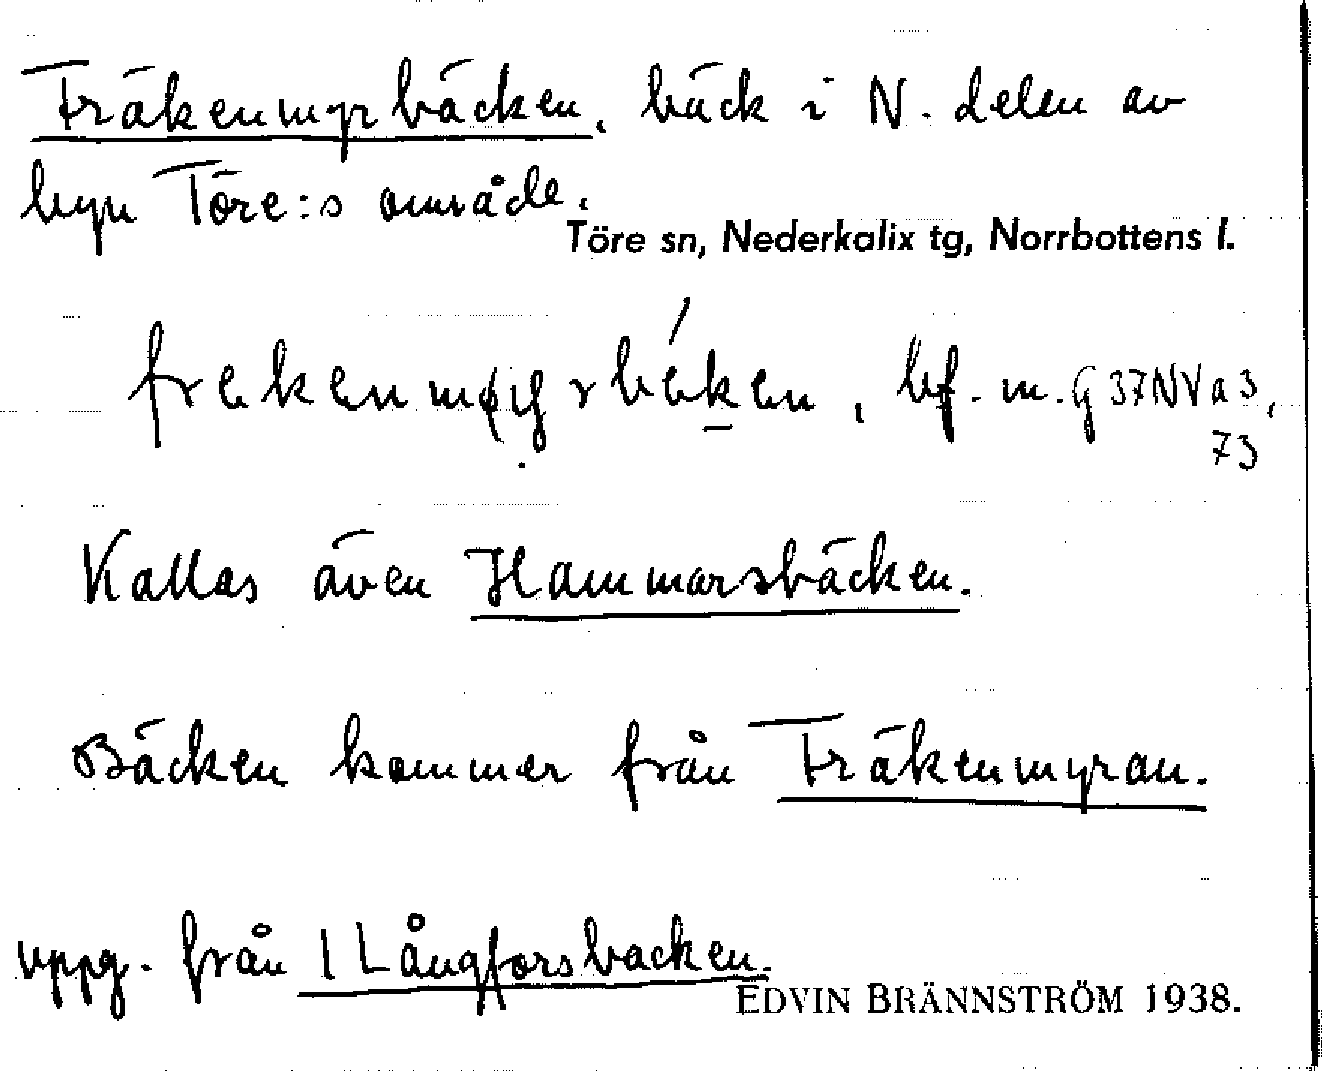 Fräkenmyrbäcken, bäck i N. delen av
byn Töre:s område.
Töre sn, Nederkalix tg, Norrbottens l.
bf. m. G 37NV a 3,
73
Kallas även Hammarsbäcken.
Bäcken kommer från Fräkenmyran.
uppg. från 1 Långforsbacken.
EDVIN BRÄNNSTRÖM 1938.